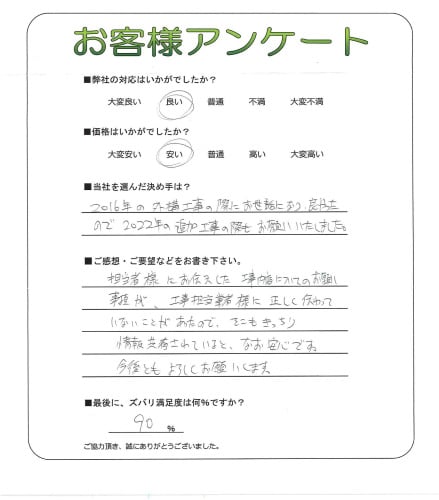 お客様アンケート
■弊社の対応はいかがでしたか?
大変良い 良い 普通 不満 大変不満
■価格はいかがでしたか?
大変安い 安い 普通 高い 大変高い
■当社を選んだ決め手は?
2016年の外構工事の際にお世話になり、良かった
ので2022年の追加工事の際もお願いいたしました。
■ご感想・ご要望などをお書き下さい。
担当者様にお伝えした工事内容についてのお願い
事項が、工事担当業者様に正しく伝わって
いないことがあったので、そこもきっちり
情報共有されていると、なお安心です。
今後ともよろしくお願いします
■最後に、ズバリ満足度は何%ですか?
90 %
ご協力頂き、誠にありがとうございました。